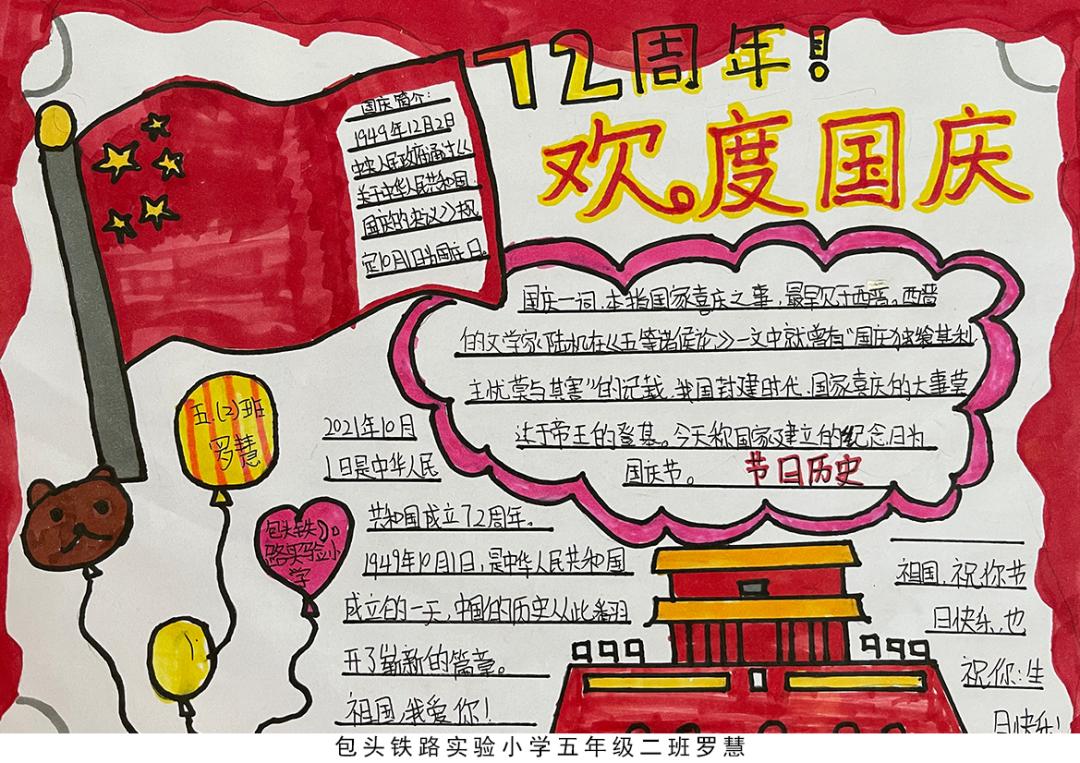 72周年!
欢度国庆
国庆简介:
1949年12月2日
中央人民政府通过《
关于中华人民共和国
国庆的决议》规
定10月1日为国庆日。
国庆一词,本指国家喜庆之事,最早见于西晋。西晋
的文学家陆机在《五等诸侯论》一文中就曾有“国庆独飨其利
主忧莫与其害”的记载、我国封建时代、国家喜庆的大事莫
过于帝王的登基。今天称国家建立的纪念日为
国庆节。
节日历史
五(2)班
罗慧
包头铁
路实验小
学
2021年10月
1日是中华人民
共和国成立72周年。
1949年10月1日,是中华人民共和国
成立的一天,中国的历史从此翻
开了崭新的篇章。
祖国,我爱你!
祖国,祝你节
日快乐,也
祝你:生
日快乐!
包头铁路实验小学五年级二班罗慧